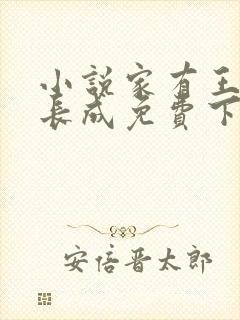 小说家有王
长成免费下
安倍晋太郎